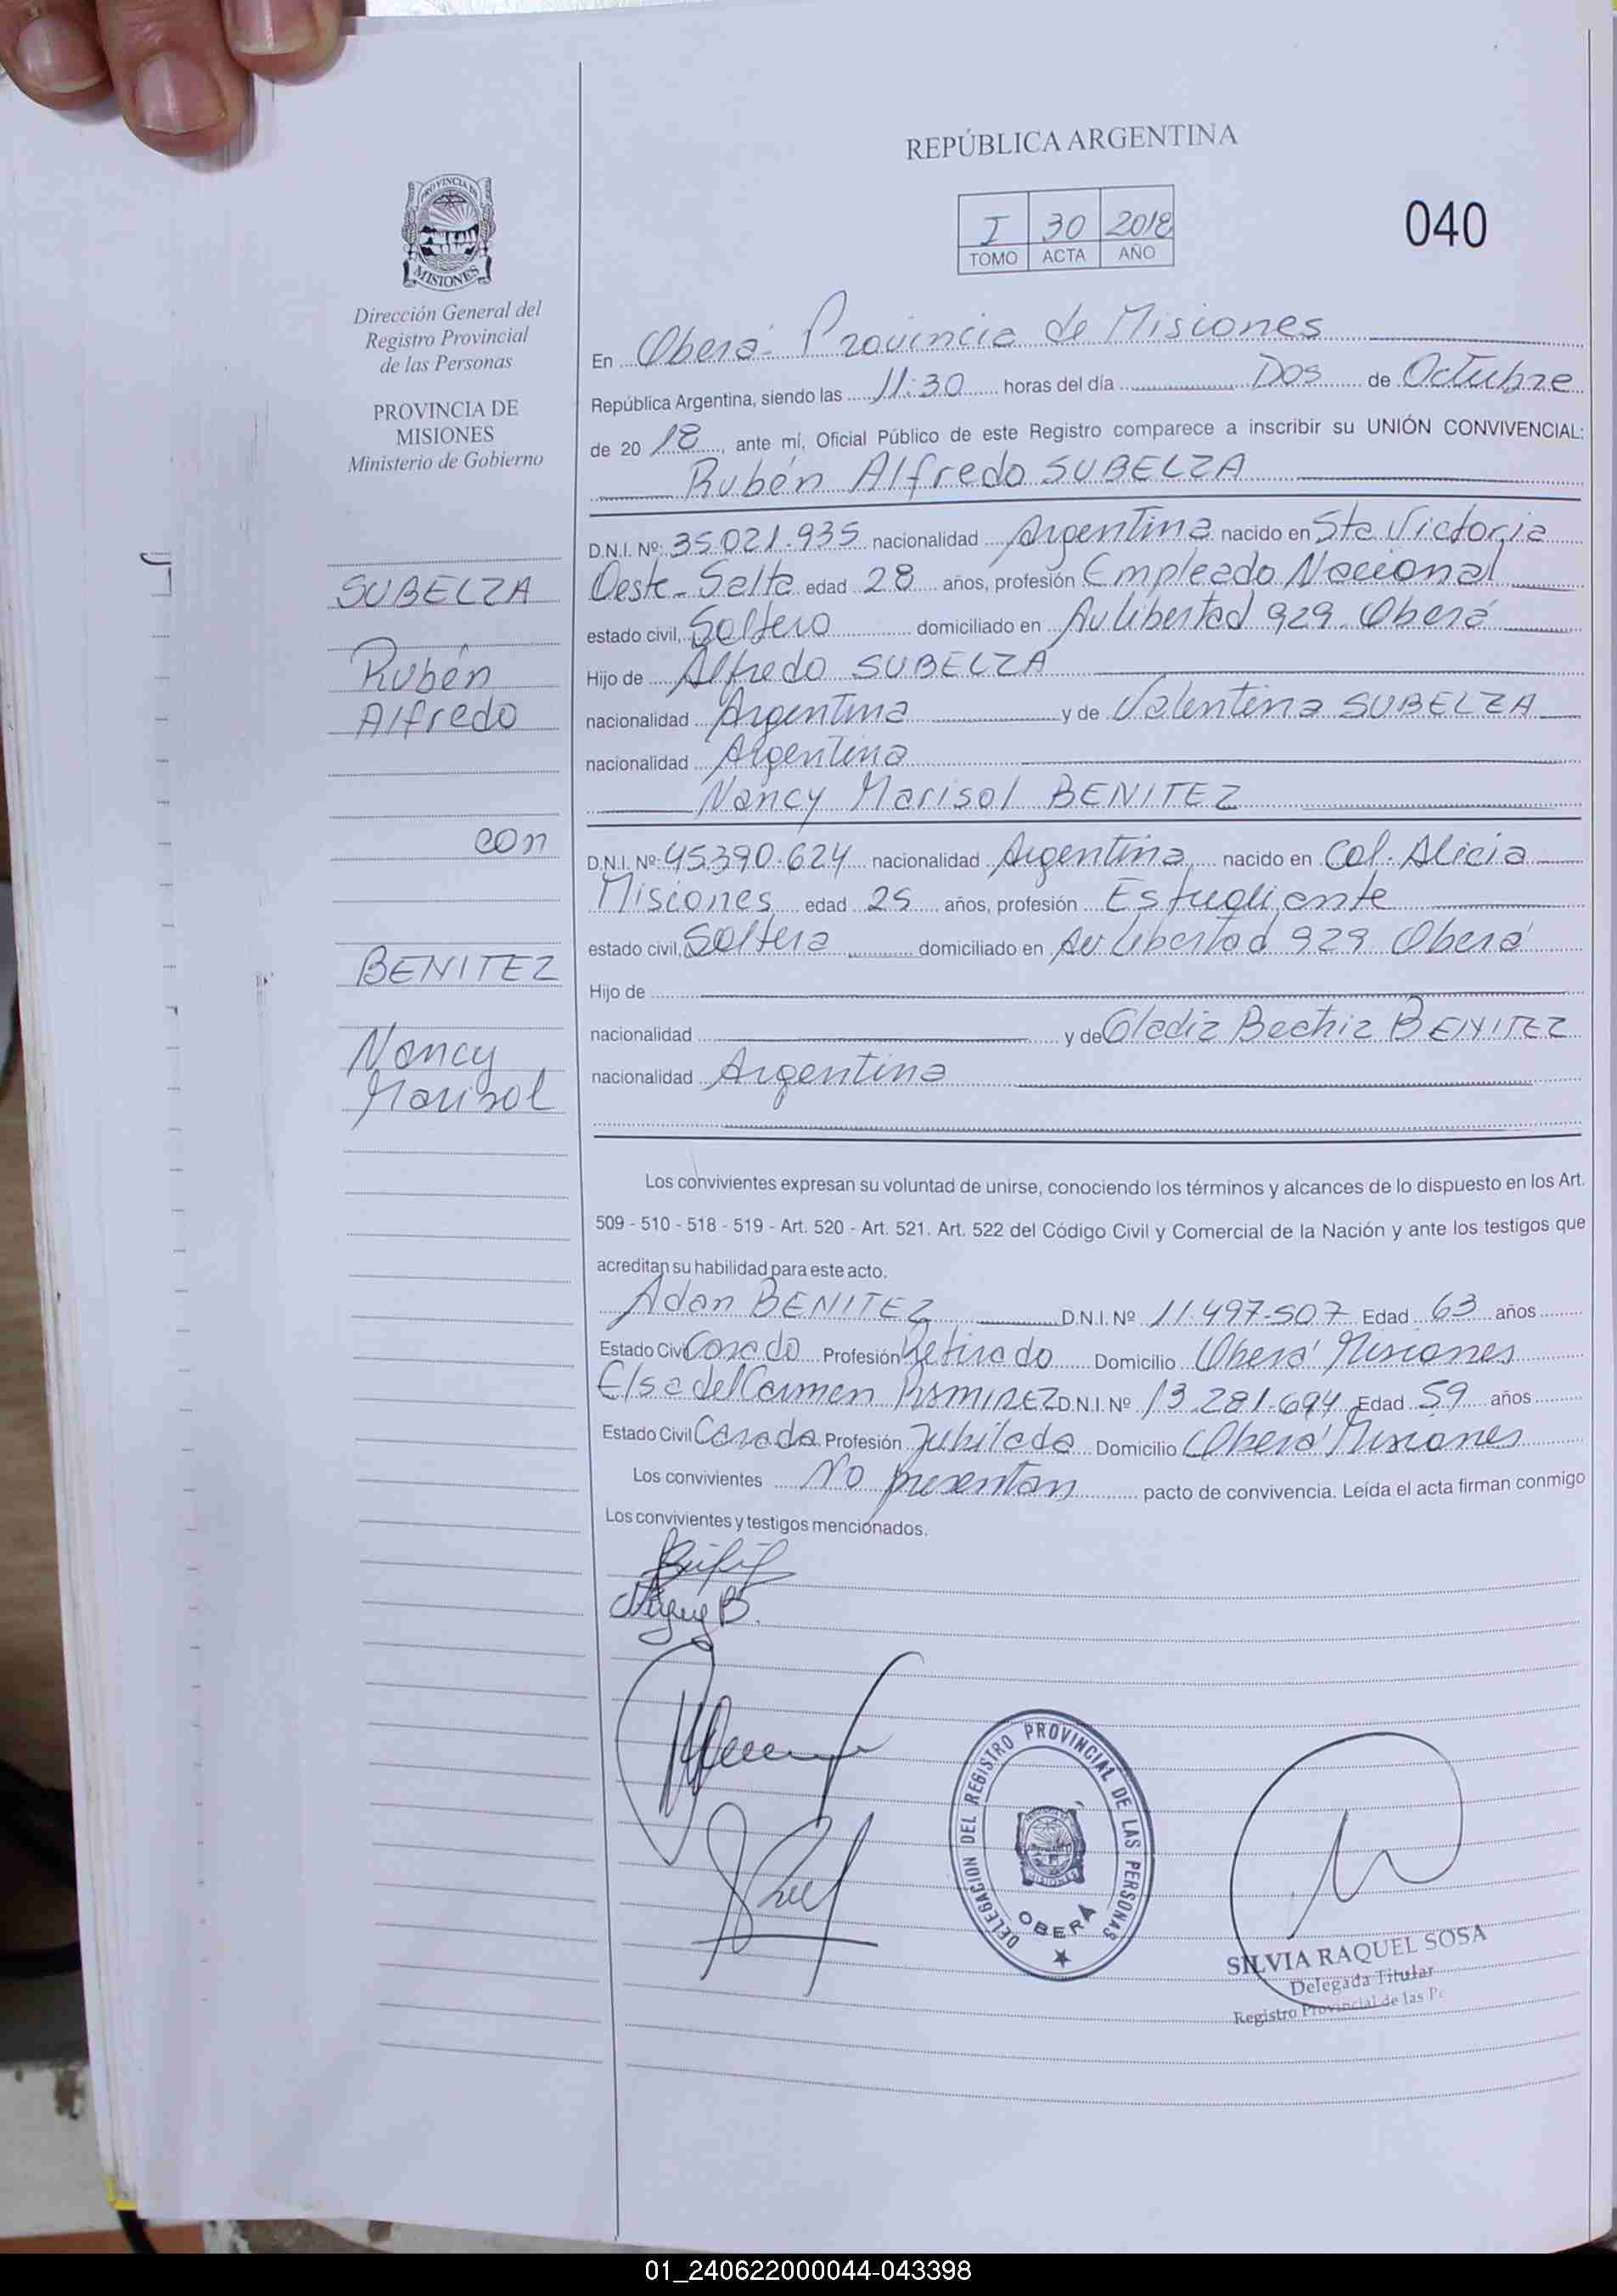 REPÚBLICA ARGENTINA
I 30 2018
TOMO ACTA AÑO
040
PROVINCIA DE
MISIONES
Dirección General del
Registro Provincial
de las Personas
PROVINCIA DE
MISIONES
Ministerio de Gobierno
SUBELZA
Rubén
Alfredo
con
BENITEZ
Nancy
Marisol
En Oberá - Provincia de Misiones
República Argentina, siendo las 11:30 horas del día Dos de Octubre
de 20 18, ante mí, Oficial Público de este Registro comparece a inscribir su UNIÓN CONVIVENCIAL:
Rubén Alfredo SUBELZA
D.N.I. Nº: 35.021.935 nacionalidad Argentina nacido en Sta Victoria
Oeste - Salta edad 28 años, profesión Empleado Nacional
estado civil, Soltero domiciliado en Av Libertad 929 - Oberá
Hijo de Alfredo SUBELZA
nacionalidad Argentina y de Valentina SUBELZA
nacionalidad Argentina
Nancy Marisol BENITEZ
D.N.I. Nº: 45.390.624 nacionalidad Argentina nacido en Col. Alicia
Misiones edad 25 años, profesión Estudiante
estado civil, Soltera domiciliado en Av Libertad 929 Oberá
Hijo de
nacionalidad y de Gladiz Beatriz BENITEZ
nacionalidad Argentina
Los convivientes expresan su voluntad de unirse, conociendo los términos y alcances de lo dispuesto en los Art.
509 - 510 - 518 - 519 - Art. 520 - Art. 521. Art. 522 del Código Civil y Comercial de la Nación y ante los testigos que
acreditan su habilidad para este acto.
Adan BENITEZ D.N.I. Nº 11.497.507 Edad 63 años
Estado Civil Casado Profesión Retirado Domicilio Oberá Misiones
Elsa del Carmen RAMIREZ D.N.I. Nº 13.281.694 Edad 59 años
Estado Civil Casada Profesión Jubilada Domicilio Oberá Misiones
Los convivientes No presentan pacto de convivencia. Leída el acta firman conmigo
Los convivientes y testigos mencionados.
DELEGACION DEL REGISTRO PROVINCIAL DE LAS PERSONAS
OBERA
SILVIA RAQUEL SOSA
Delegada Titular
Registro Provincial de las Pe
01_240622000044-043398